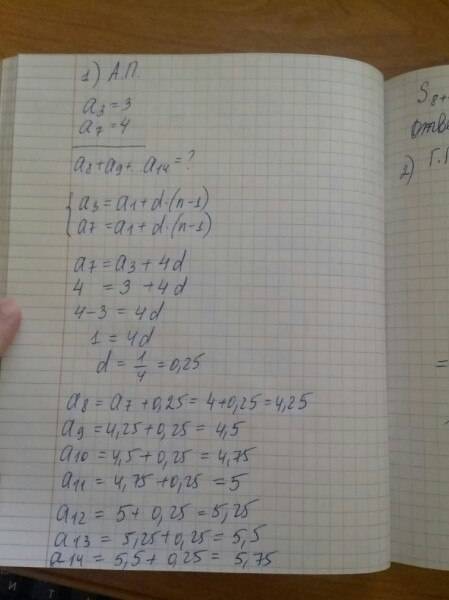 1) А.П.
a₃ = 3
a₇ = 4
a₈+a₉+.. a₁₄=?
a₃ = a₁+d·(n-1)
a₇ = a₁+d·(n-1)
a₇ = a₃+4d
4 = 3 +4d
4-3 = 4d
1 = 4d
d = 1/4 = 0,25
a₈ = a₇ +0,25= 4+0,25=4,25
a₉ = 4,25+0,25= 4,5
a₁₀ = 4,5+0,25= 4,75
a₁₁ = 4,75+0,25 = 5
a₁₂ = 5+ 0,25=5,25
a₁₃ = 5,25+0,25 = 5,5
a₁₄ = 5,5+ 0,25 = 5,75
S₈₊
отве
2) Г.
=